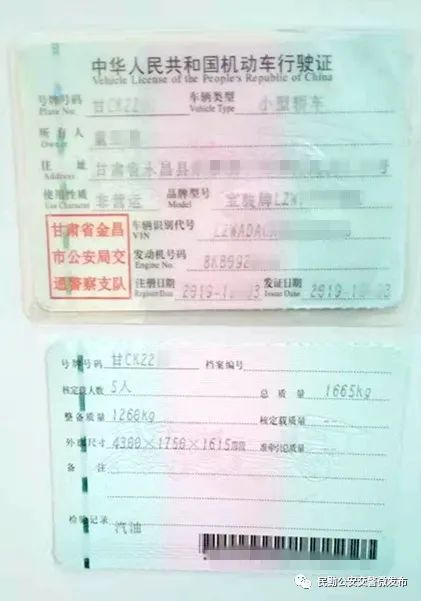 中华人民共和国机动车行驶证
Vehicle License of the People's Republic of China
号牌号码 甘CK22 车辆类型 小型轿车
Plate No. Vehicle Type
所有人
Owner
住址 甘肃省永昌县 号
Address
使用性质 非营运 品牌型号 宝骏牌LZW
Use Character Model
甘肃省金昌
市公安局交
通警察支队
车辆识别代号 LZWADA
VIN
发动机号码 8KB992
Engine No.
注册日期 2019-1 03 发证日期 2019-1 03
Register Date Issue Date
号牌号码 甘CK22 档案编号
核定载人数 5人 总质量 1665kg
整备质量 1260kg 核定载质量 --
外廓尺寸 4300×1750×1615mm 准牵引总质量 --
备注
检验记录 汽油
民勤公安交警微发布